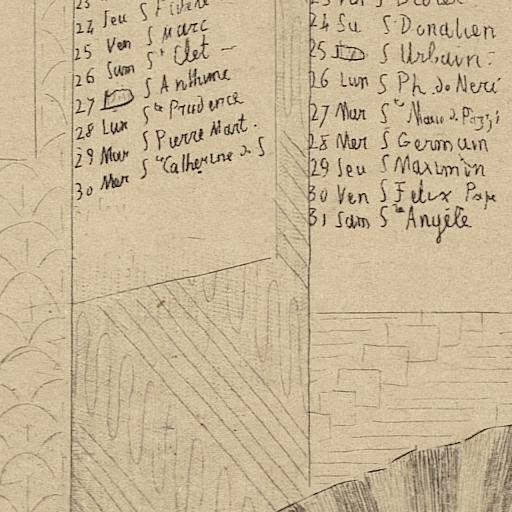 24 Jeu S Fidèle
25 Ven S Marc
26 Sam S^t Clet –
27 Dim S Anthime
28 Lun S^te Prudence
29 Mar S Pierre Mart.
30 Mer S^te Catherine d. S
24 Sa S. Donatien
25 Dim S Urbain.
26 Lun S Ph. de Neri
27 Mar S^te
28 Mer S Germain
29 Jeu S Maximin
30 Ven S Felix Pape
31 Sam S^te Angèle